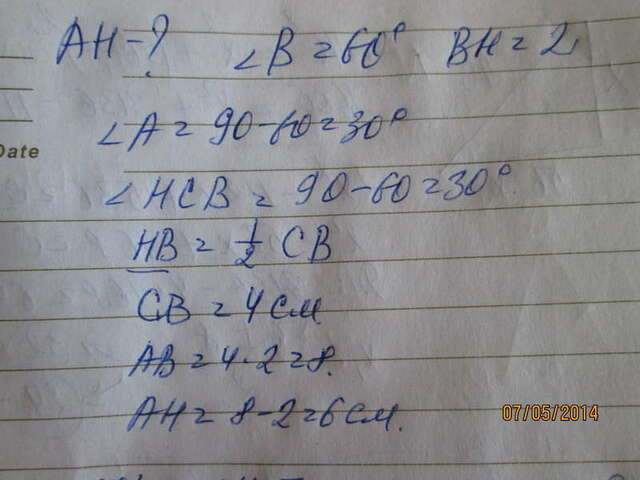 AH - ? ∠B = 60° BH = 2
∠A = 90-60=30°
Date
∠HCB = 90-60=30°
HB = 1/2 CB
CB = 4 см
AB = 4·2=8.
AH = 8-2=6 см.
07/05/2014